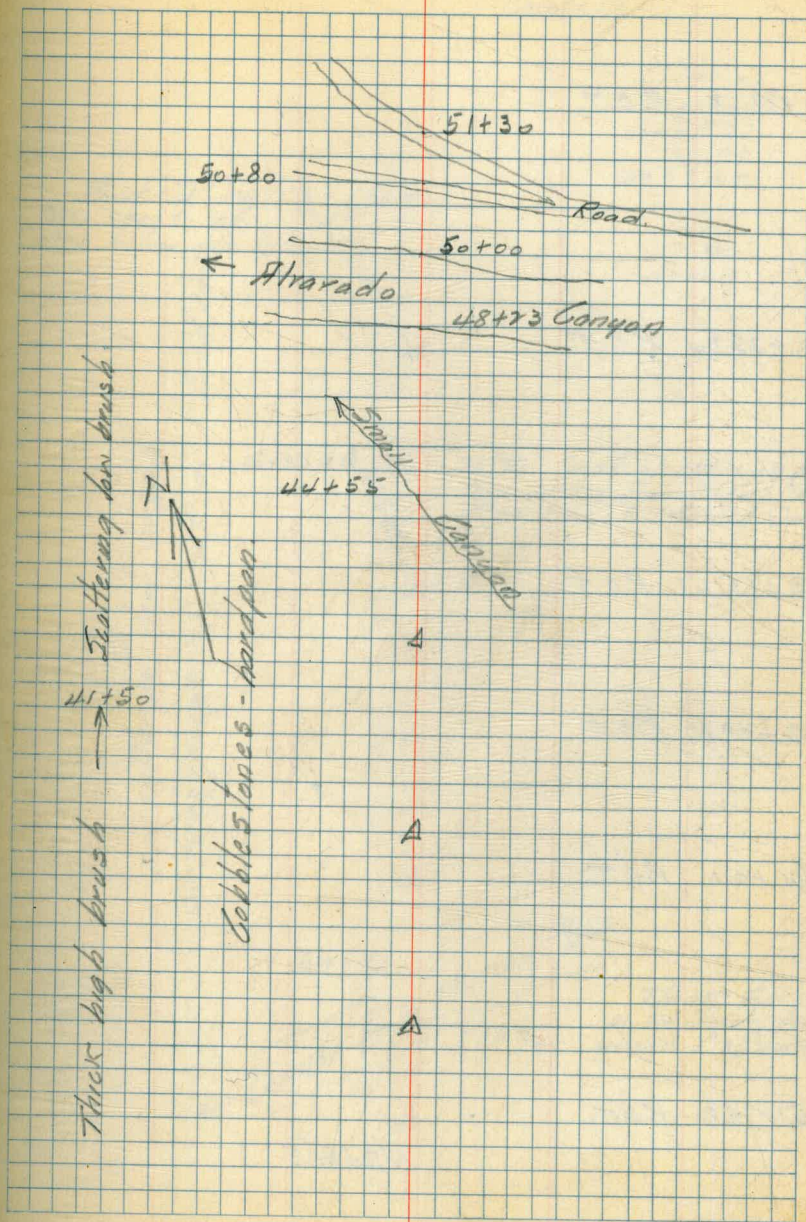 51+30
50+80
Road.
50+00
← Alvarado
48+23 Canyon
Small Canyon
44+55
Thick high brush → Scattering low brush.
41+50
Cobblestones - hardpan.